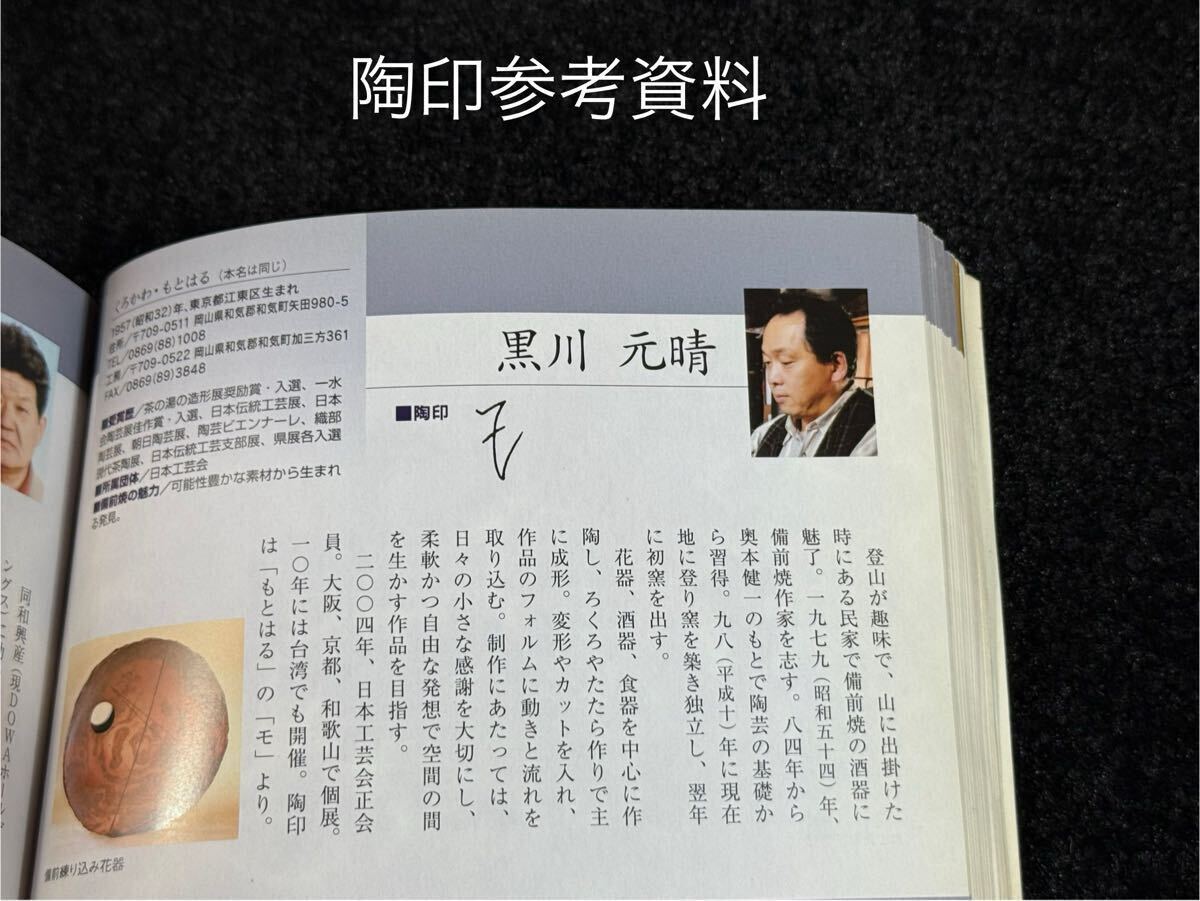 陶印参考資料
黒川 元晴
■陶印
モ
くろかわ・もとはる（本名は同じ）
1957（昭和32）年、東京都江東区生まれ
住所／〒709-0511 岡山県和気郡和気町矢田980-5
TEL／0869(88)1008
工房／〒709-0522 岡山県和気郡和気町加三方361
FAX／0869(89)3848
■受賞歴／茶の湯の造形展奨励賞・入選、一水
会陶芸展佳作賞・入選、日本伝統工芸展、日本
陶芸展、朝日陶芸展、陶芸ビエンナーレ、織部
現代茶陶展、日本伝統工芸支部展、県展各入選
■所属団体／日本工芸会
■備前焼の魅力／可能性豊かな素材から生まれ
る発見。
登山が趣味で、山に出掛けた
時にある民家で備前焼の酒器に
魅了。一九七九（昭和五十四）年、
備前焼作家を志す。八四年から
奥本健一のもとで陶芸の基礎か
ら習得。九八（平成十）年に現在
地に登り窯を築き独立し、翌年
に初窯を出す。
花器、酒器、食器を中心に作
陶し、ろくろやたたら作りで主
に成形。変形やカットを入れ、
作品のフォルムに動きと流れを
取り込む。制作にあたっては、
日々の小さな感謝を大切にし、
柔軟かつ自由な発想で空間の間
を生かす作品を目指す。
二〇〇四年、日本工芸会正会
員。大阪、京都、和歌山で個展。
一〇年には台湾でも開催。陶印
は「もとはる」の「モ」より。
備前練り込み花器
同和興産（現DOWAホールデ